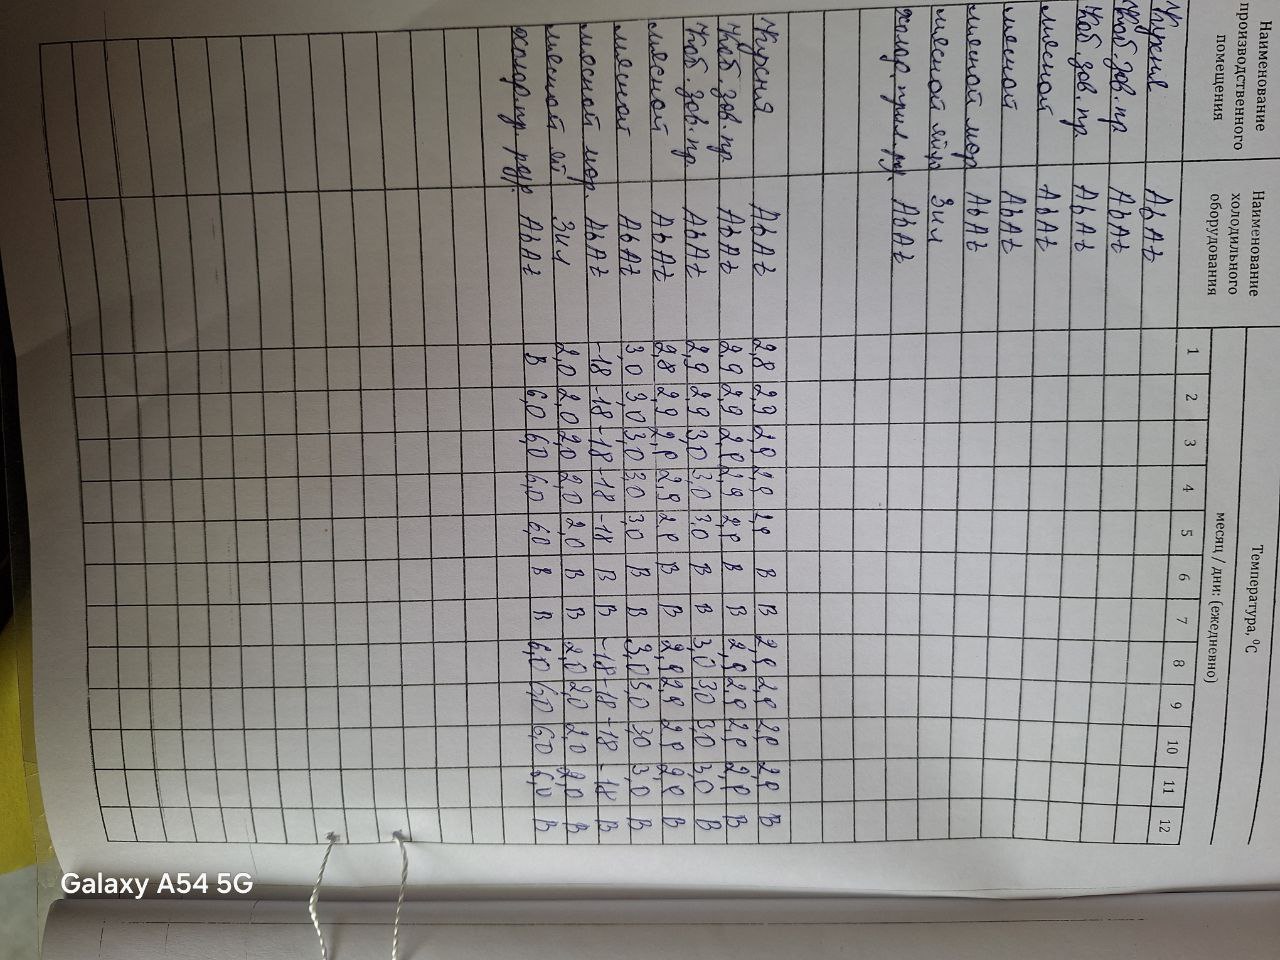 Наименование производственного помещения
Наименование холодильного оборудования
Температура, ⁰С
месяц / дни: (ежедневно)
1 2 3 4 5 6 7 8 9 10 11 12
Кухня АвАt
Каб. зав. пр АвАt
Каб. зав. пр. АвАt
мясной АвАt
мясной АвАt
мясной мор АвАt
мясной яйц Зил
АвАt
Кухня АвАt 2,8 2,9 2,9 2,9 2,9 В В 2,9 2,9 2,9 2,9 В
Каб. зав. пр. АвАt 2,9 2,9 2,9 2,9 2,9 В В 2,9 2,9 2,9 2,9 В
Каб. зав. пр. АвАt 2,9 2,9 3,0 3,0 3,0 В В 3,0 3,0 3,0 3,0 В
мясной АвАt 2,8 2,9 2,9 2,9 2,9 В В 2,9 2,9 2,9 2,9 В
мясной АвАt 3,0 3,0 3,0 3,0 3,0 В В 3,0 3,0 3,0 3,0 В
мясной мор. АвАt -18 -18 -18 -18 -18 В В -18 -18 -18 -18 В
мясной яй Зил 2,0 2,0 2,0 2,0 2,0 В В 2,0 2,0 2,0 2,0 В
АвАt В 6,0 6,0 6,0 6,0 В В 6,0 6,0 6,0 6,0 В
Galaxy A54 5G